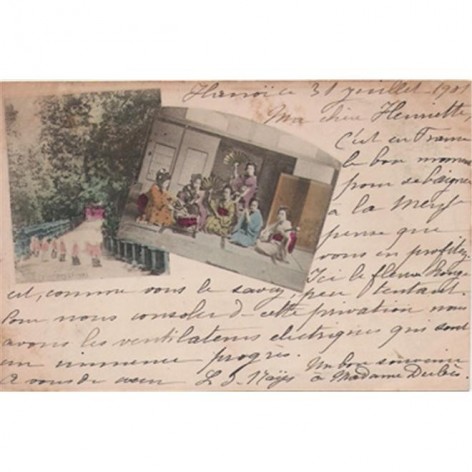 Hanoï ce 31 juillet 190
Ma chère Henriette
C'est en France
le bon moment
pour se baigner
à la mer. Je
pense que
vous en profitez
Ici le fleuve Rouge
est, comme vous le savez, peu tentant
Pour nous consoler d cette privation nous
avons les ventilateurs électriques qui sont
un immense progrès.
Un bon souvenir
à vous de cœur
à Madame